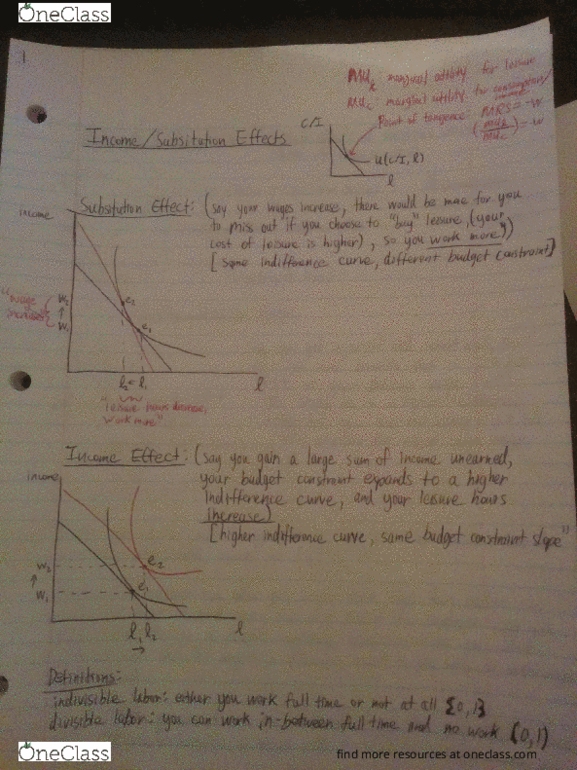 OneClass
1
MUl: marginal utility for leisure
MUc: marginal utility for consumption/
income
Point of tangence: MRS = -w
(MUl/MUc) = -w
c/I
u(c/I, l)
l
Income/Subsitution Effects
Subsitution Effect: (say your wages increase, there would be more for you
to miss out if you choose to "buy" leisure, (your
cost of leisure is higher), so you work more))
[same indifference curve, different budget constraint]
income
"wage
increases"
w2
↑
w1
e2
e1
l2 ← l1
l
"leisure hours decrease,
work more"
Income Effect: (say you gain a large sum of income unearned,
your budget constraint expands to a higher
indifference curve, and your leisure hours
increase)
[higher indifference curve, same budget constraint slope"
income
w2
↑
w1
e2
e1
l1 l2
→
l
Definitions:
indivisible labor: either you work full time or not at all {0,1}
divisible labor: you can work in-between full time and no work (0,1)
OneClass
find more resources at oneclass.com